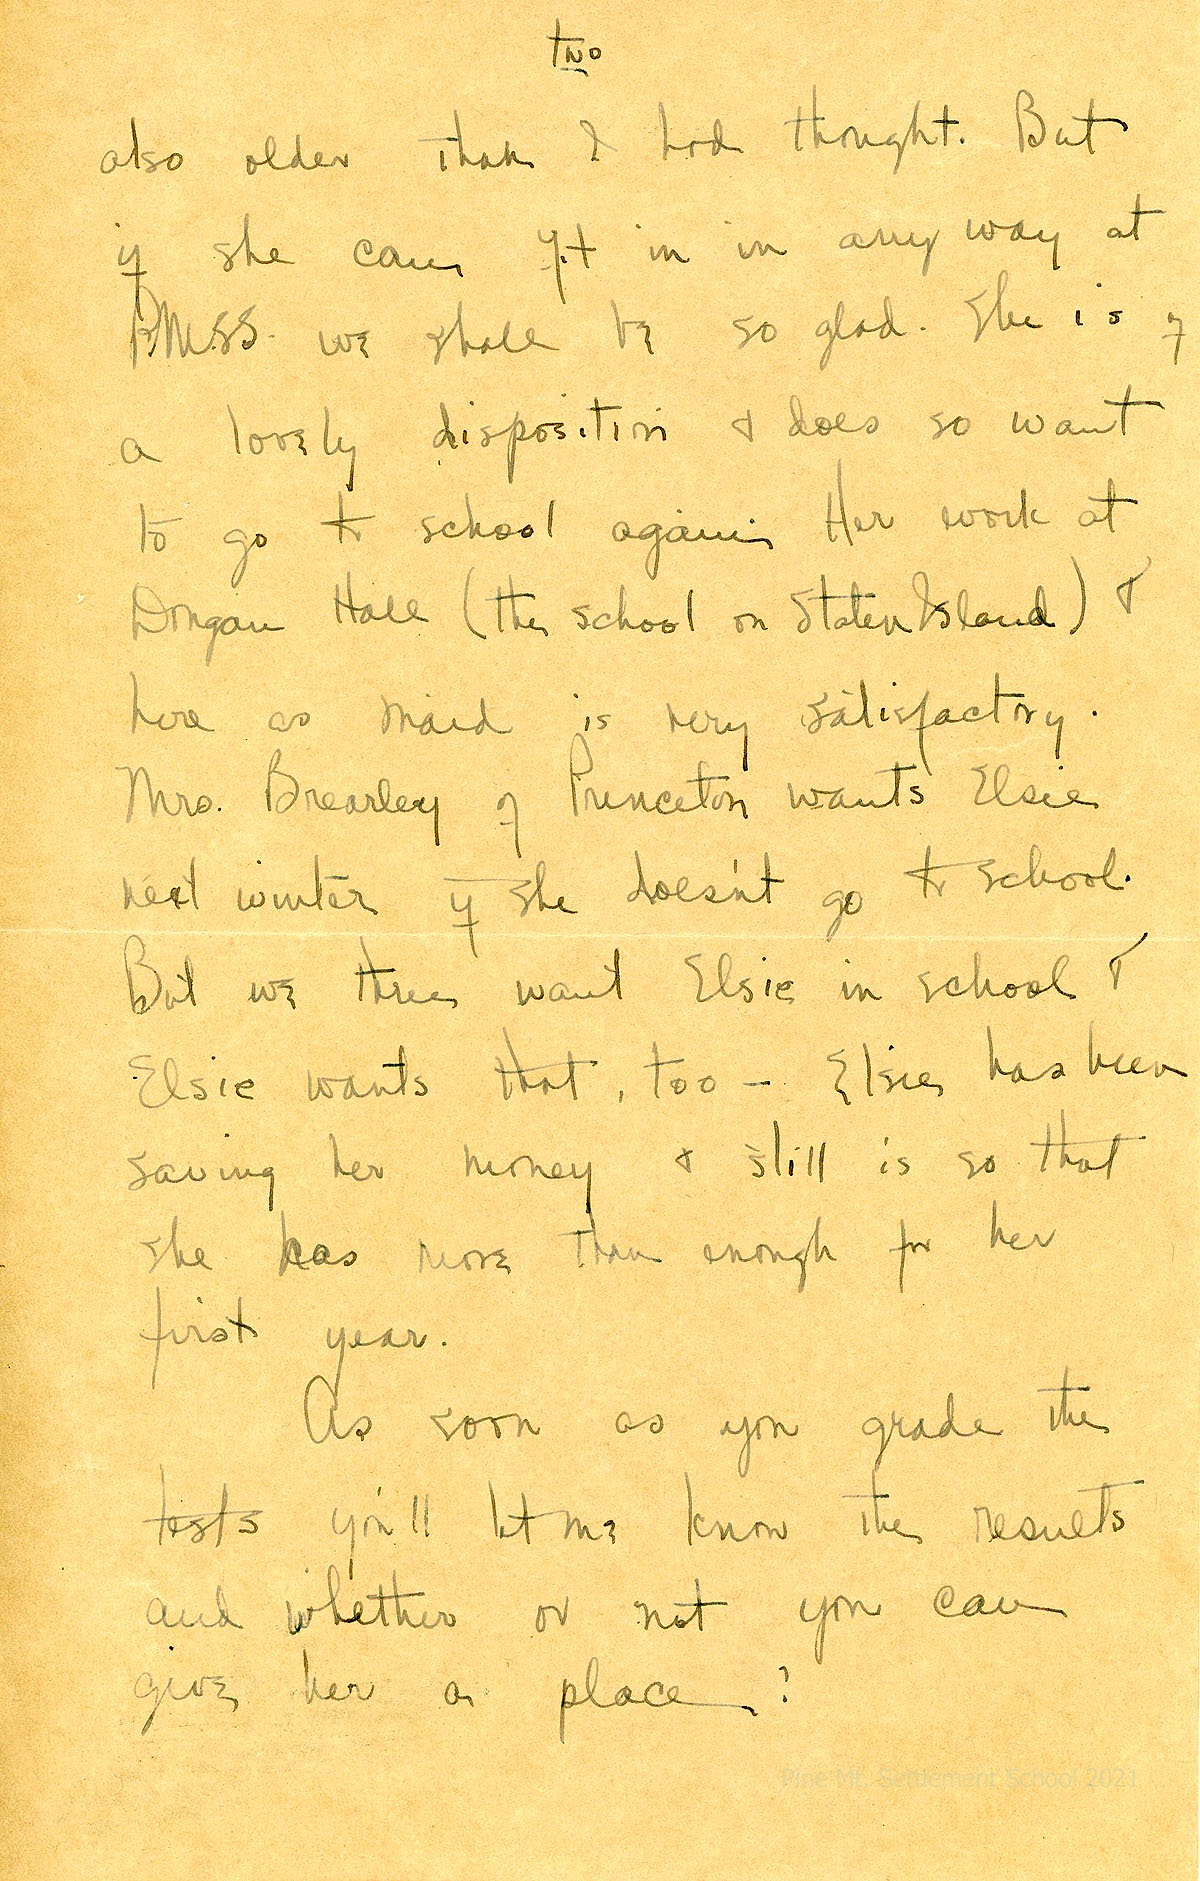 two
also older than I had thought. But
if she can fit in in any way at
PMSS. we shall be so glad. She is of
a lovely disposition & does so want
to go to school again. Her work at
Dongan Hall (the school on Staten Island) &
here as maid is very satisfactory.
Mrs. Brearley of Princeton wants Elsie
next winter if she doesn't go to school.
But we three want Elsie in school &
Elsie wants that, too - Elsie has been
saving her money & still is so that
she has more than enough for her
first year.
As soon as you grade the
tests you'll let me know the results
and whether or not you can
give her a place?
Pine Mt. Settlement School 2021